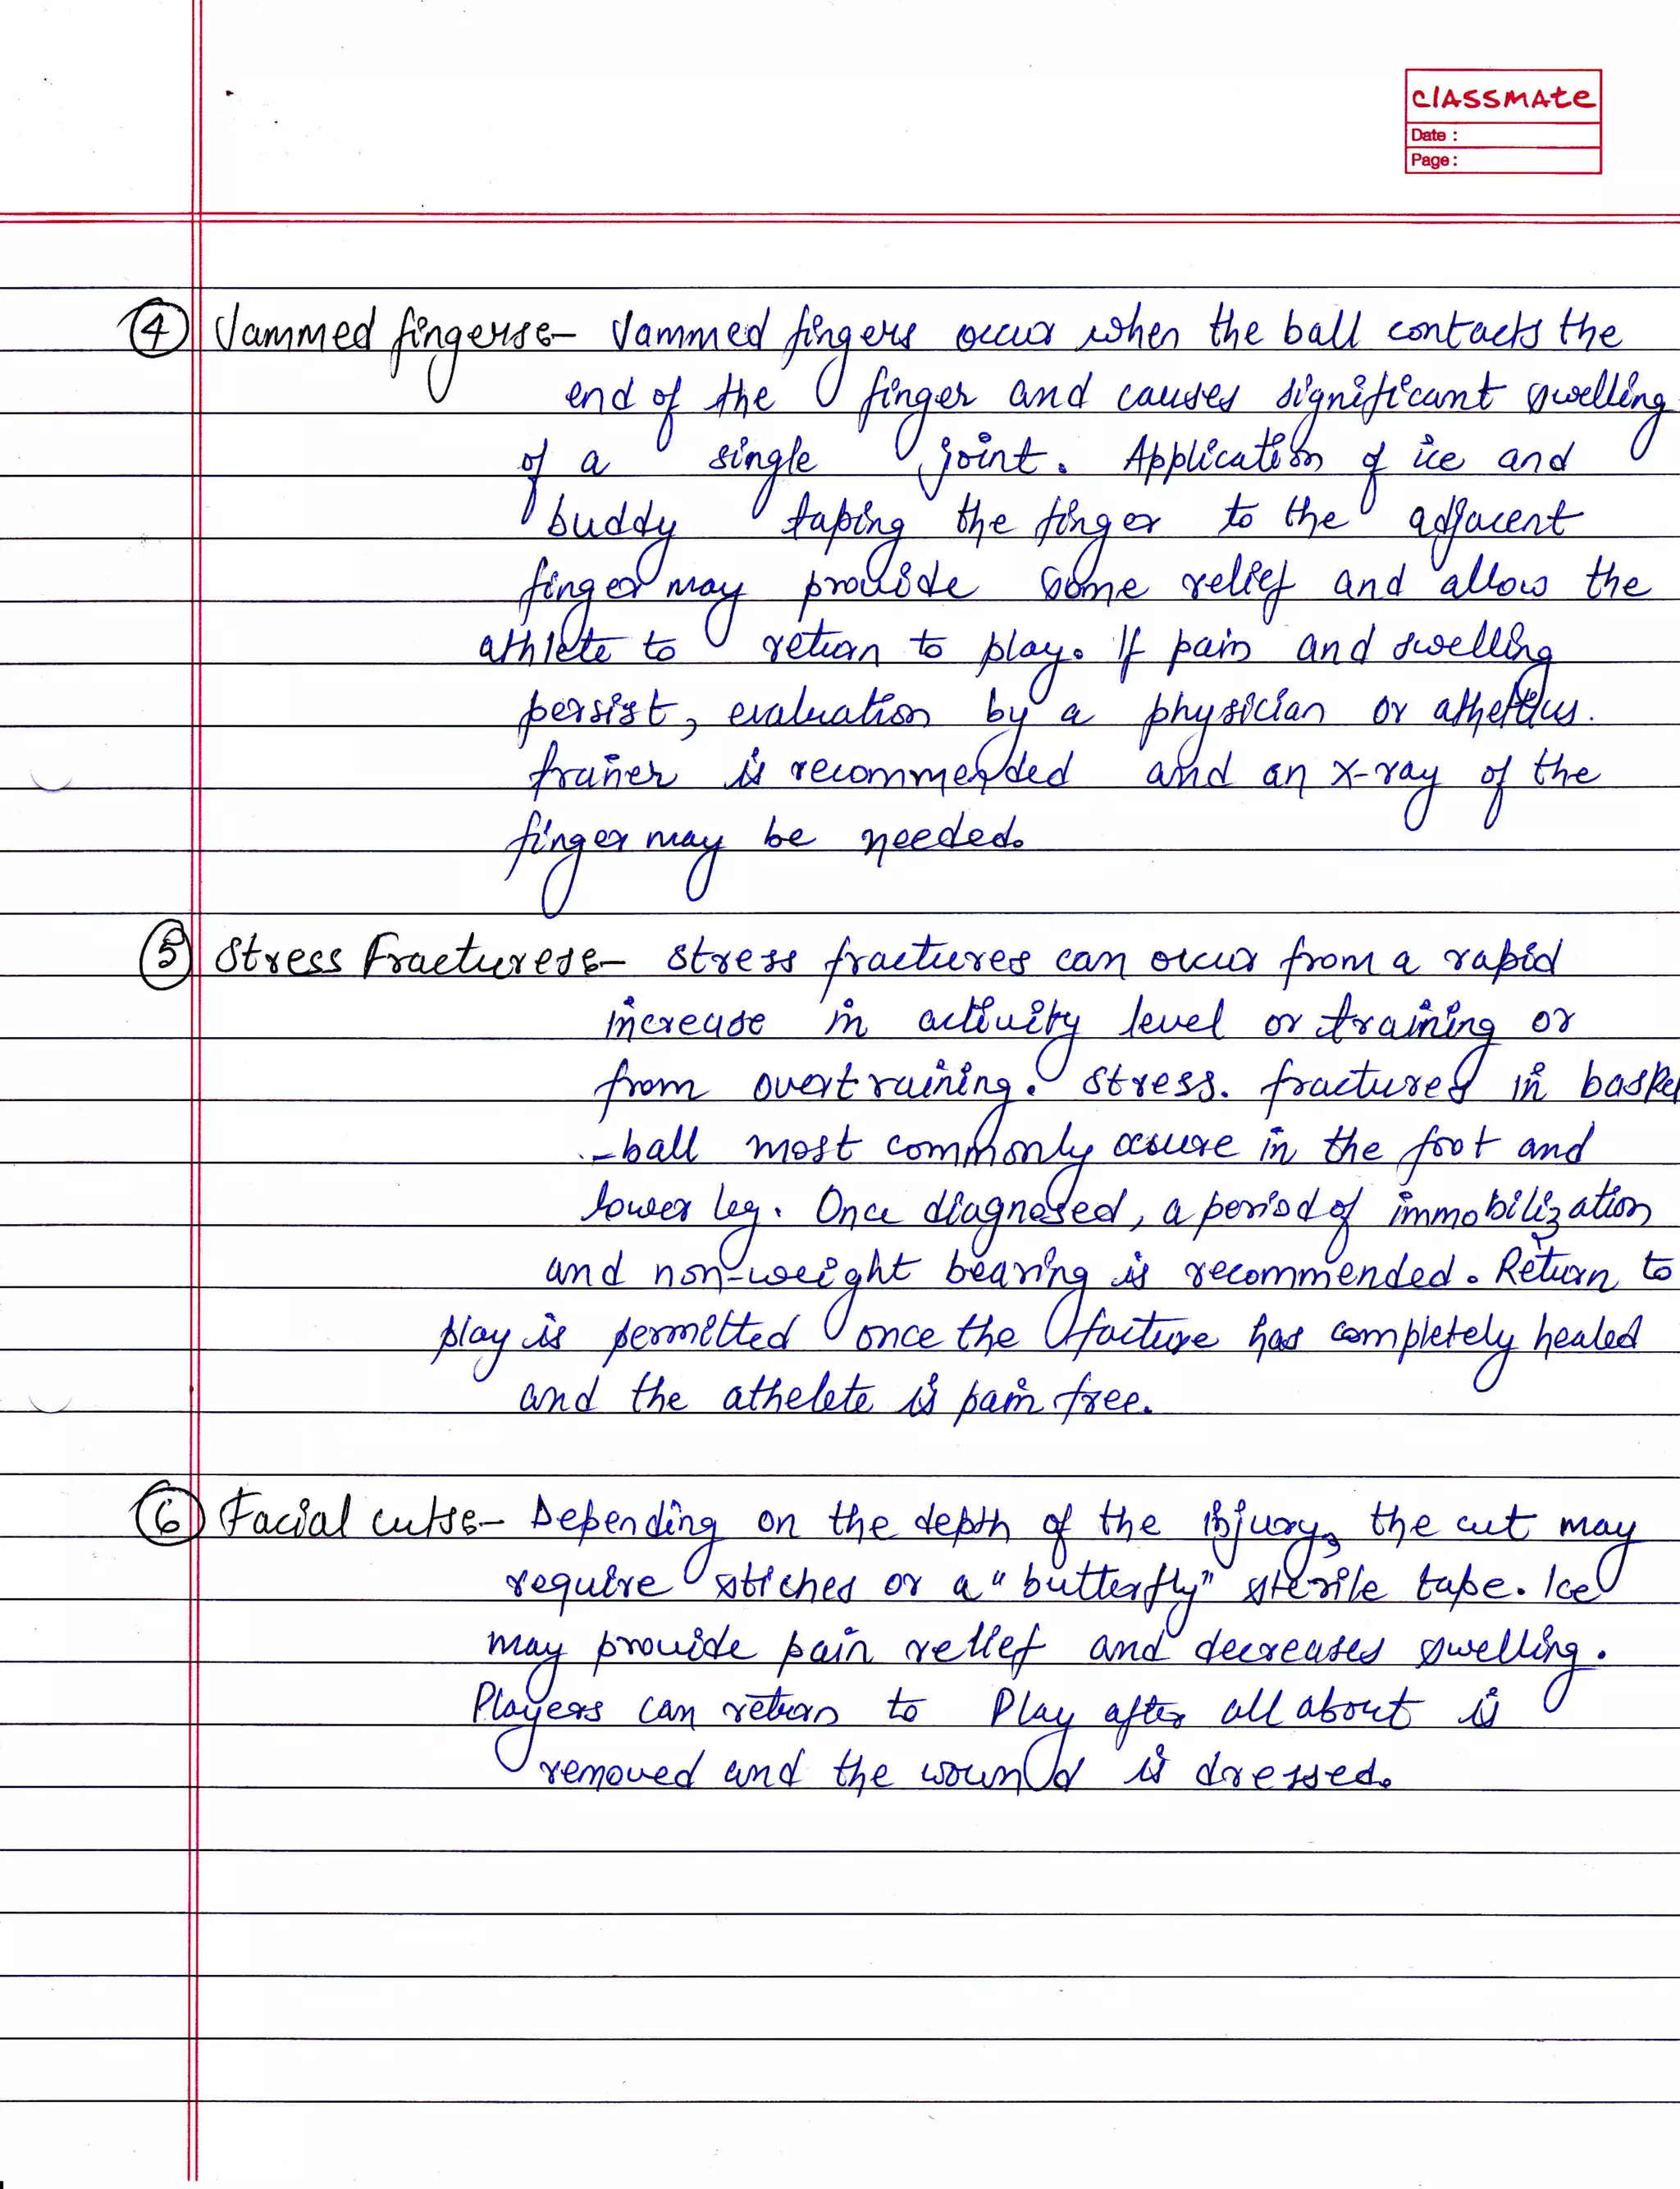 classmate
Date :
Page :
④ Jammed fingers:- Jammed fingers occur when the ball contacts the
end of the finger and causes significant swelling
of a single joint. Application of ice and
buddy taping the finger to the adjacent
finger may provide some relief and allow the
athlete to return to play. If pain and swelling
persist, evaluation by a physician or
trainer is recommended and an x-ray of the
finger may be needed.
⑤ Stress Fractures:- Stress fractures can occur from a rapid
increase in activity level or training or
from overtraining. Stress. fractures in basket
-ball most commonly occure in the foot and
lower leg. Once diagnosed, a period of immobilization
and non-weight bearing is recommended. Return to
play is permitted once the facture has completely healed
and the athelete is pain free.
⑥ Facial cuts:- Depending on the depth of the injury, the cut may
require stiches or a "butterfly" sterile tape. Ice
may provide pain relief and decreases swelling.
Players can return to Play after all about is
removed and the wound is dressed.